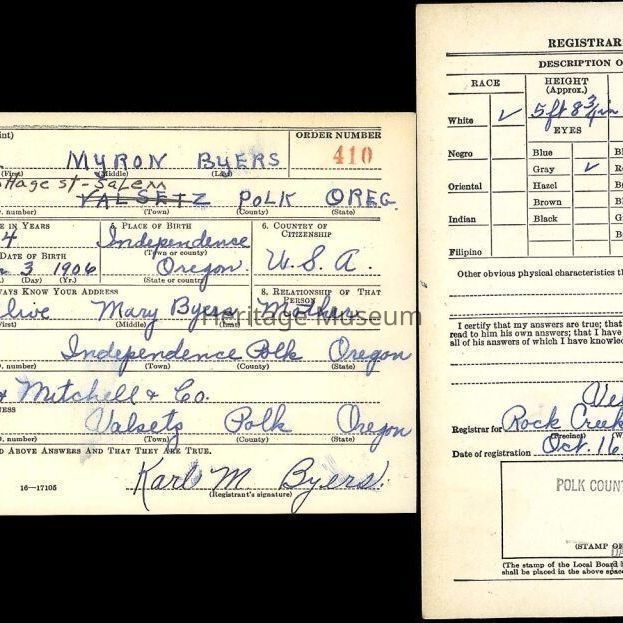 int)
ORDER NUMBER
MYRON BYERS
410
(First) (Middle) (Last)
ttage st - Salem
VALSETZ POLK OREG.
D. number) (Town) (County) (State)
E IN YEARS
5. PLACE OF BIRTH
6. COUNTRY OF
CITIZENSHIP
4
Independence
(Town or county)
DATE OF BIRTH
U.S.A.
3 1906
Oregon.
(Day) (Yr.)
(State or country)
WAYS KNOW YOUR ADDRESS
8. RELATIONSHIP OF THAT
PERSON
live Mary Byers Mother
First) (Middle) (Last)
Heritage Museum
Independence Polk Oregon
D. number) (Town) (County) (State)
& Mitchell & Co.
NESS
Valsetz Polk Oregon
D. number) (Town) (County) (State)
D ABOVE ANSWERS AND THAT THEY ARE TRUE.
Karl M. Byers.
16—17105
(Registrant's signature)
REGISTRAR
DESCRIPTION O
RACE
HEIGHT
(Approx.)
White ✓
5 ft 8 3/4 in
EYES
Negro
Blue
Gray ✓
Oriental
Hazel
Brown
Indian
Black
Filipino
Other obvious physical characteristics th
I certify that my answers are true; that
read to him his own answers; that I have
all of his answers of which I have knowled
Registrar for Rock Creek
(Precinct)
Date of registration Oct. 16
POLK COUNT
(STAMP OF
(The stamp of the Local Board h
shall be placed in the above space